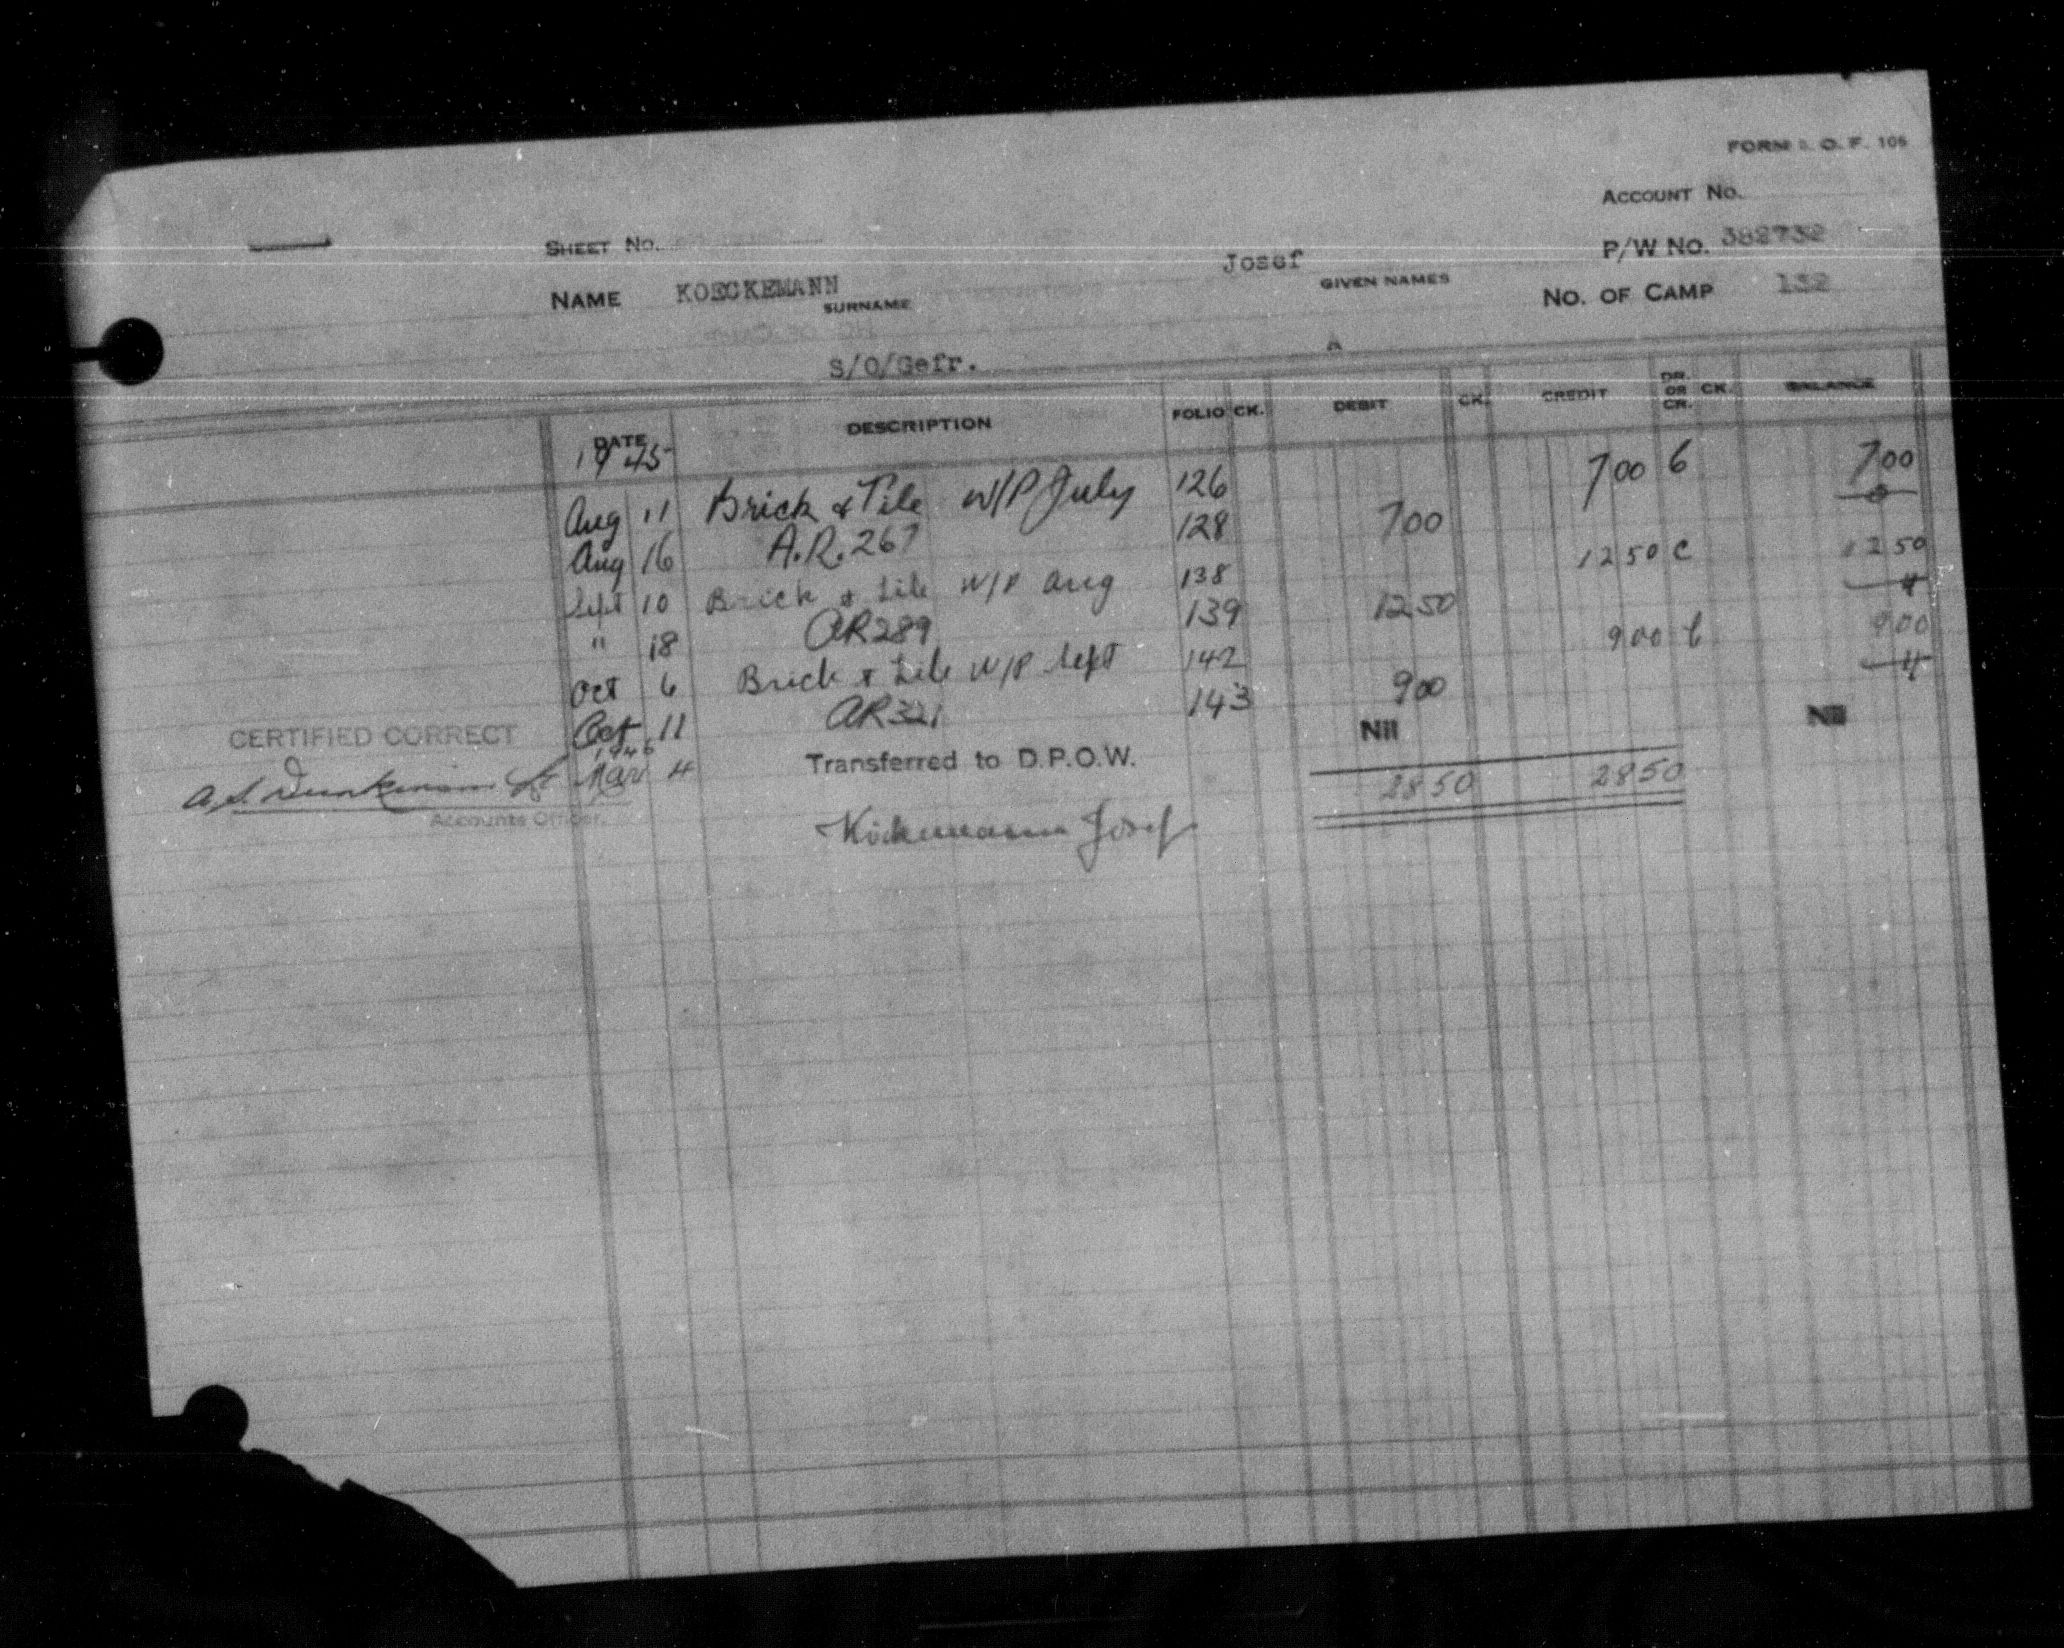 FORM B. O. F. 106
ACCOUNT NO.
SHEET NO.
P/W NO. 382732
NAME KOECKEMANN Josef
SURNAME GIVEN NAMES
NO. OF CAMP 132
S/O/Gefr. A
DATE DESCRIPTION FOLIO CK. DEBIT CK. CREDIT DR. OR CR. CK. BALANCE
1945
Aug 11 Brick & Tile W/P July 126 700 C 700
Aug 16 A.R. 267 128 700
Sept 10 Brick & Tile W/P Aug 138 1250 C 1250
" 18 AR289 139 1250
Oct 6 Brick & Tile W/P Sept 142 900 C 900
Oct 11 AR321 143 900
CERTIFIED CORRECT
1946
Mar 4 Transferred to D.P.O.W. Nil Nil
2850 2850
Accounts Officer.
Köckemann Josef